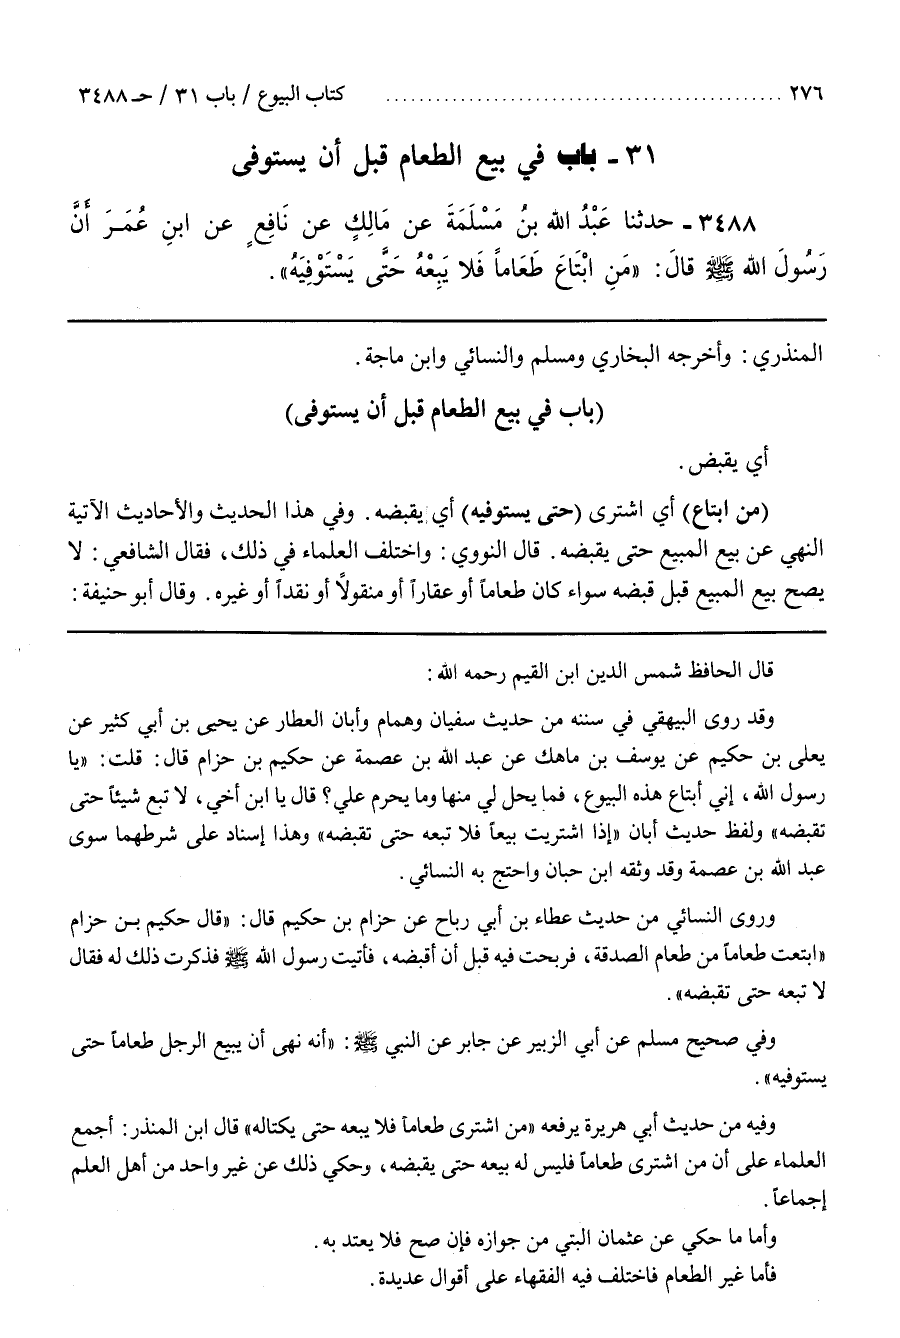 ٢٧٦ ................................................ كتاب البيوع / باب ٣١ / حـ ٣٤٨٨
٣١ - باب في بيع الطعام قبل أن يستوفى
٣٤٨٨ - حدثنا عَبْدُ الله بنُ مَسْلَمَةَ عن مَالِكٍ عن نَافِعٍ عن ابنِ عُمَرَ أَنَّ
رَسُولَ الله ﷺ قالَ: «مَنِ ابْتَاعَ طَعَاماً فَلا يَبِعْهُ حَتَّى يَسْتَوْفِيَهُ».
المنذري: وأخرجه البخاري ومسلم والنسائي وابن ماجة.
(باب في بيع الطعام قبل أن يستوفى)
أي يقبض.
(من ابتاع) أي اشترى (حتى يستوفيه) أي يقبضه. وفي هذا الحديث والأحاديث الآتية
النهي عن بيع المبيع حتى يقبضه. قال النووي: واختلف العلماء في ذلك، فقال الشافعي: لا
يصح بيع المبيع قبل قبضه سواء كان طعاماً أو عقاراً أو منقولاً أو نقداً أو غيره. وقال أبو حنيفة:
قال الحافظ شمس الدين ابن القيم رحمه الله:
وقد روى البيهقي في سننه من حديث سفيان وهمام وأبان العطار عن يحيى بن أبي كثير عن
يعلى بن حكيم عن يوسف بن ماهك عن عبد الله بن عصمة عن حكيم بن حزام قال: قلت: «يا
رسول الله، إني أبتاع هذه البيوع، فما يحل لي منها وما يحرم علي؟ قال يا ابن أخي، لا تبع شيئاً حتى
تقبضه» ولفظ حديث أبان «إذا اشتريت بيعاً فلا تبعه حتى تقبضه» وهذا إسناد على شرطهما سوى
عبد الله بن عصمة وقد وثقه ابن حبان واحتج به النسائي.
وروى النسائي من حديث عطاء بن أبي رباح عن حزام بن حكيم قال: «قال حكيم بن حزام
«ابتعت طعاماً من طعام الصدقة، فربحت فيه قبل أن أقبضه، فأتيت رسول الله ﷺ فذكرت ذلك له فقال
لا تبعه حتى تقبضه».
وفي صحيح مسلم عن أبي الزبير عن جابر عن النبي ﷺ: «أنه نهى أن يبيع الرجل طعاماً حتى
يستوفيه».
وفيه من حديث أبي هريرة يرفعه «من اشترى طعاماً فلا يبعه حتى يكتاله» قال ابن المنذر: أجمع
العلماء على أن من اشترى طعاماً فليس له بيعه حتى يقبضه، وحكي ذلك عن غير واحد من أهل العلم
إجماعاً.
وأما ما حكي عن عثمان البتي من جوازه فإن صح فلا يعتد به.
فأما غير الطعام فاختلف فيه الفقهاء على أقوال عديدة.